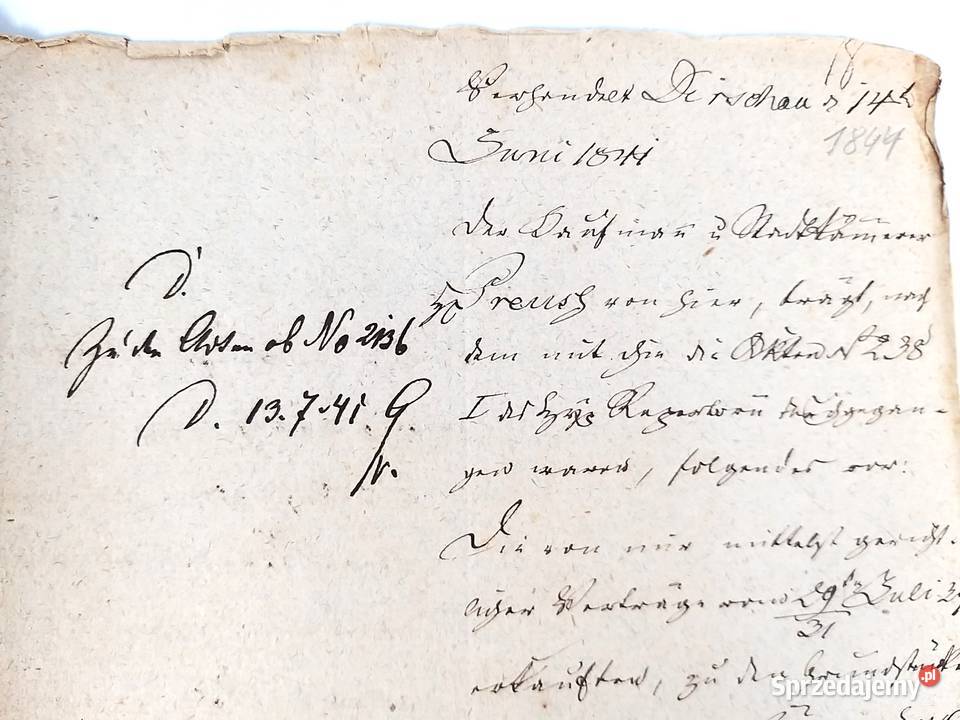 18
Verhandelt Dirschau d 14t
1844
Juni 1841
Der Kaufmann u Stadtkämmerer
Preush von hier, trägt, nach
dem mit ihm die Akten No 238
I des Hyp Repertorii durchgegan-
gen waren, folgendes vor:
Die von mir mittelst gericht-
licher Verträge vom 29t/31 Juli
erkauften, zu den Grundstücke
D.
Zu den Acten ob No 2136
D. 13.7.41 G
Sprzedajemy.pl